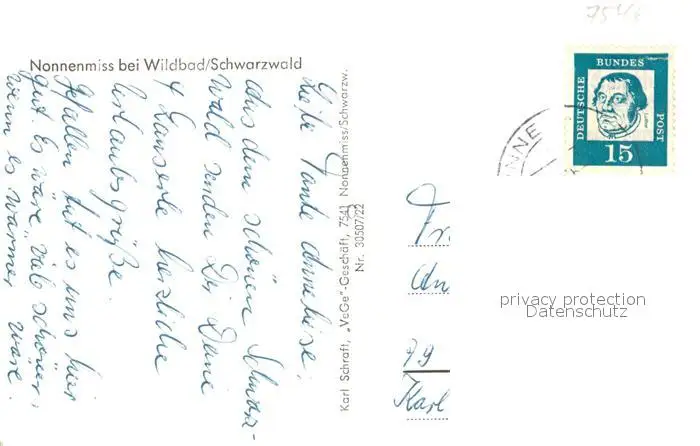 7541
Nonnenmiss bei Wildbad/Schwarzwald
Liebe Tante Anneliese,
Aus dem schönen Schwarz-
wald senden Dir Deine
4 herzliche
Urlaubsgrüße.
Gefallen tut es uns hier
gut. Es wäre viel schöner,
wenn es wärmer wäre.
Karl Schraft, „VeGe"-Geschäft, 7541 Nonnenmiss/Schwarzw.
Nr. 30507/22
DEUTSCHE
BUNDES
POST
Luther
15
NNE
Fr
An
79
Karl
privacy protection
Datenschutz